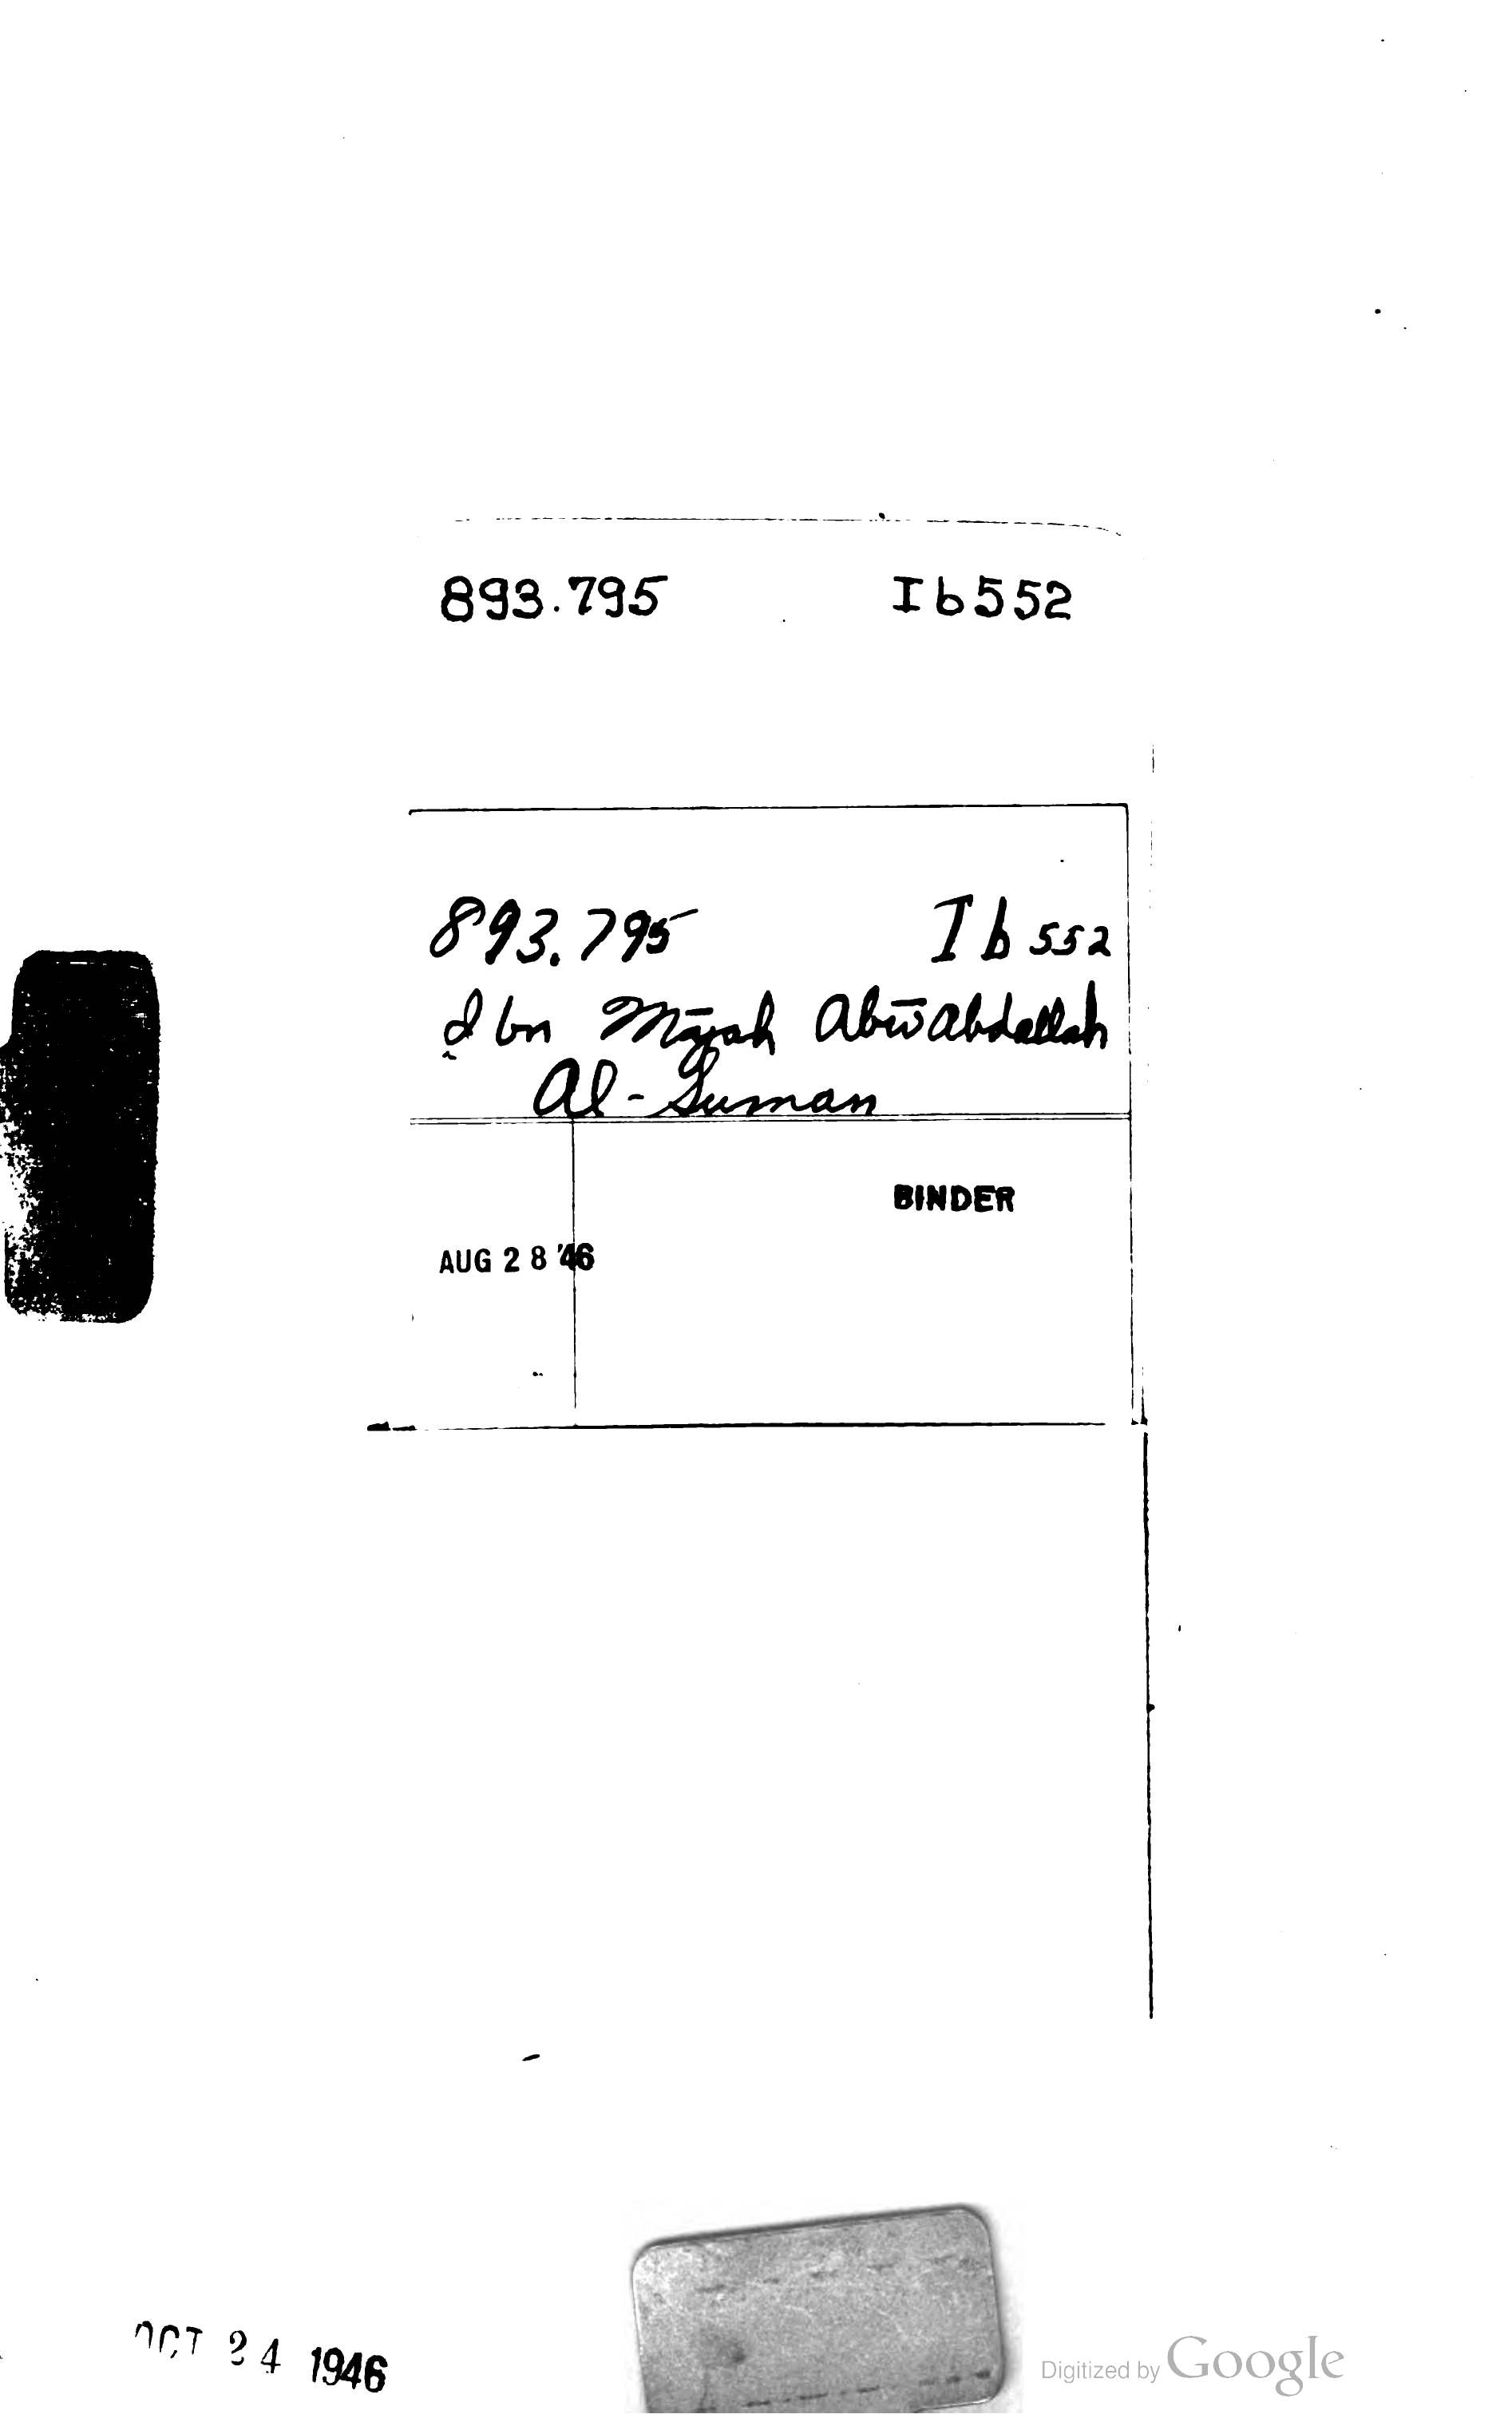 893.795 Ib552
893.795 Ib552
Ibn Mājah Abū Abdallah
Al-Sunan
BINDER
AUG 28 '46
OCT 24 1946
Digitized by Google